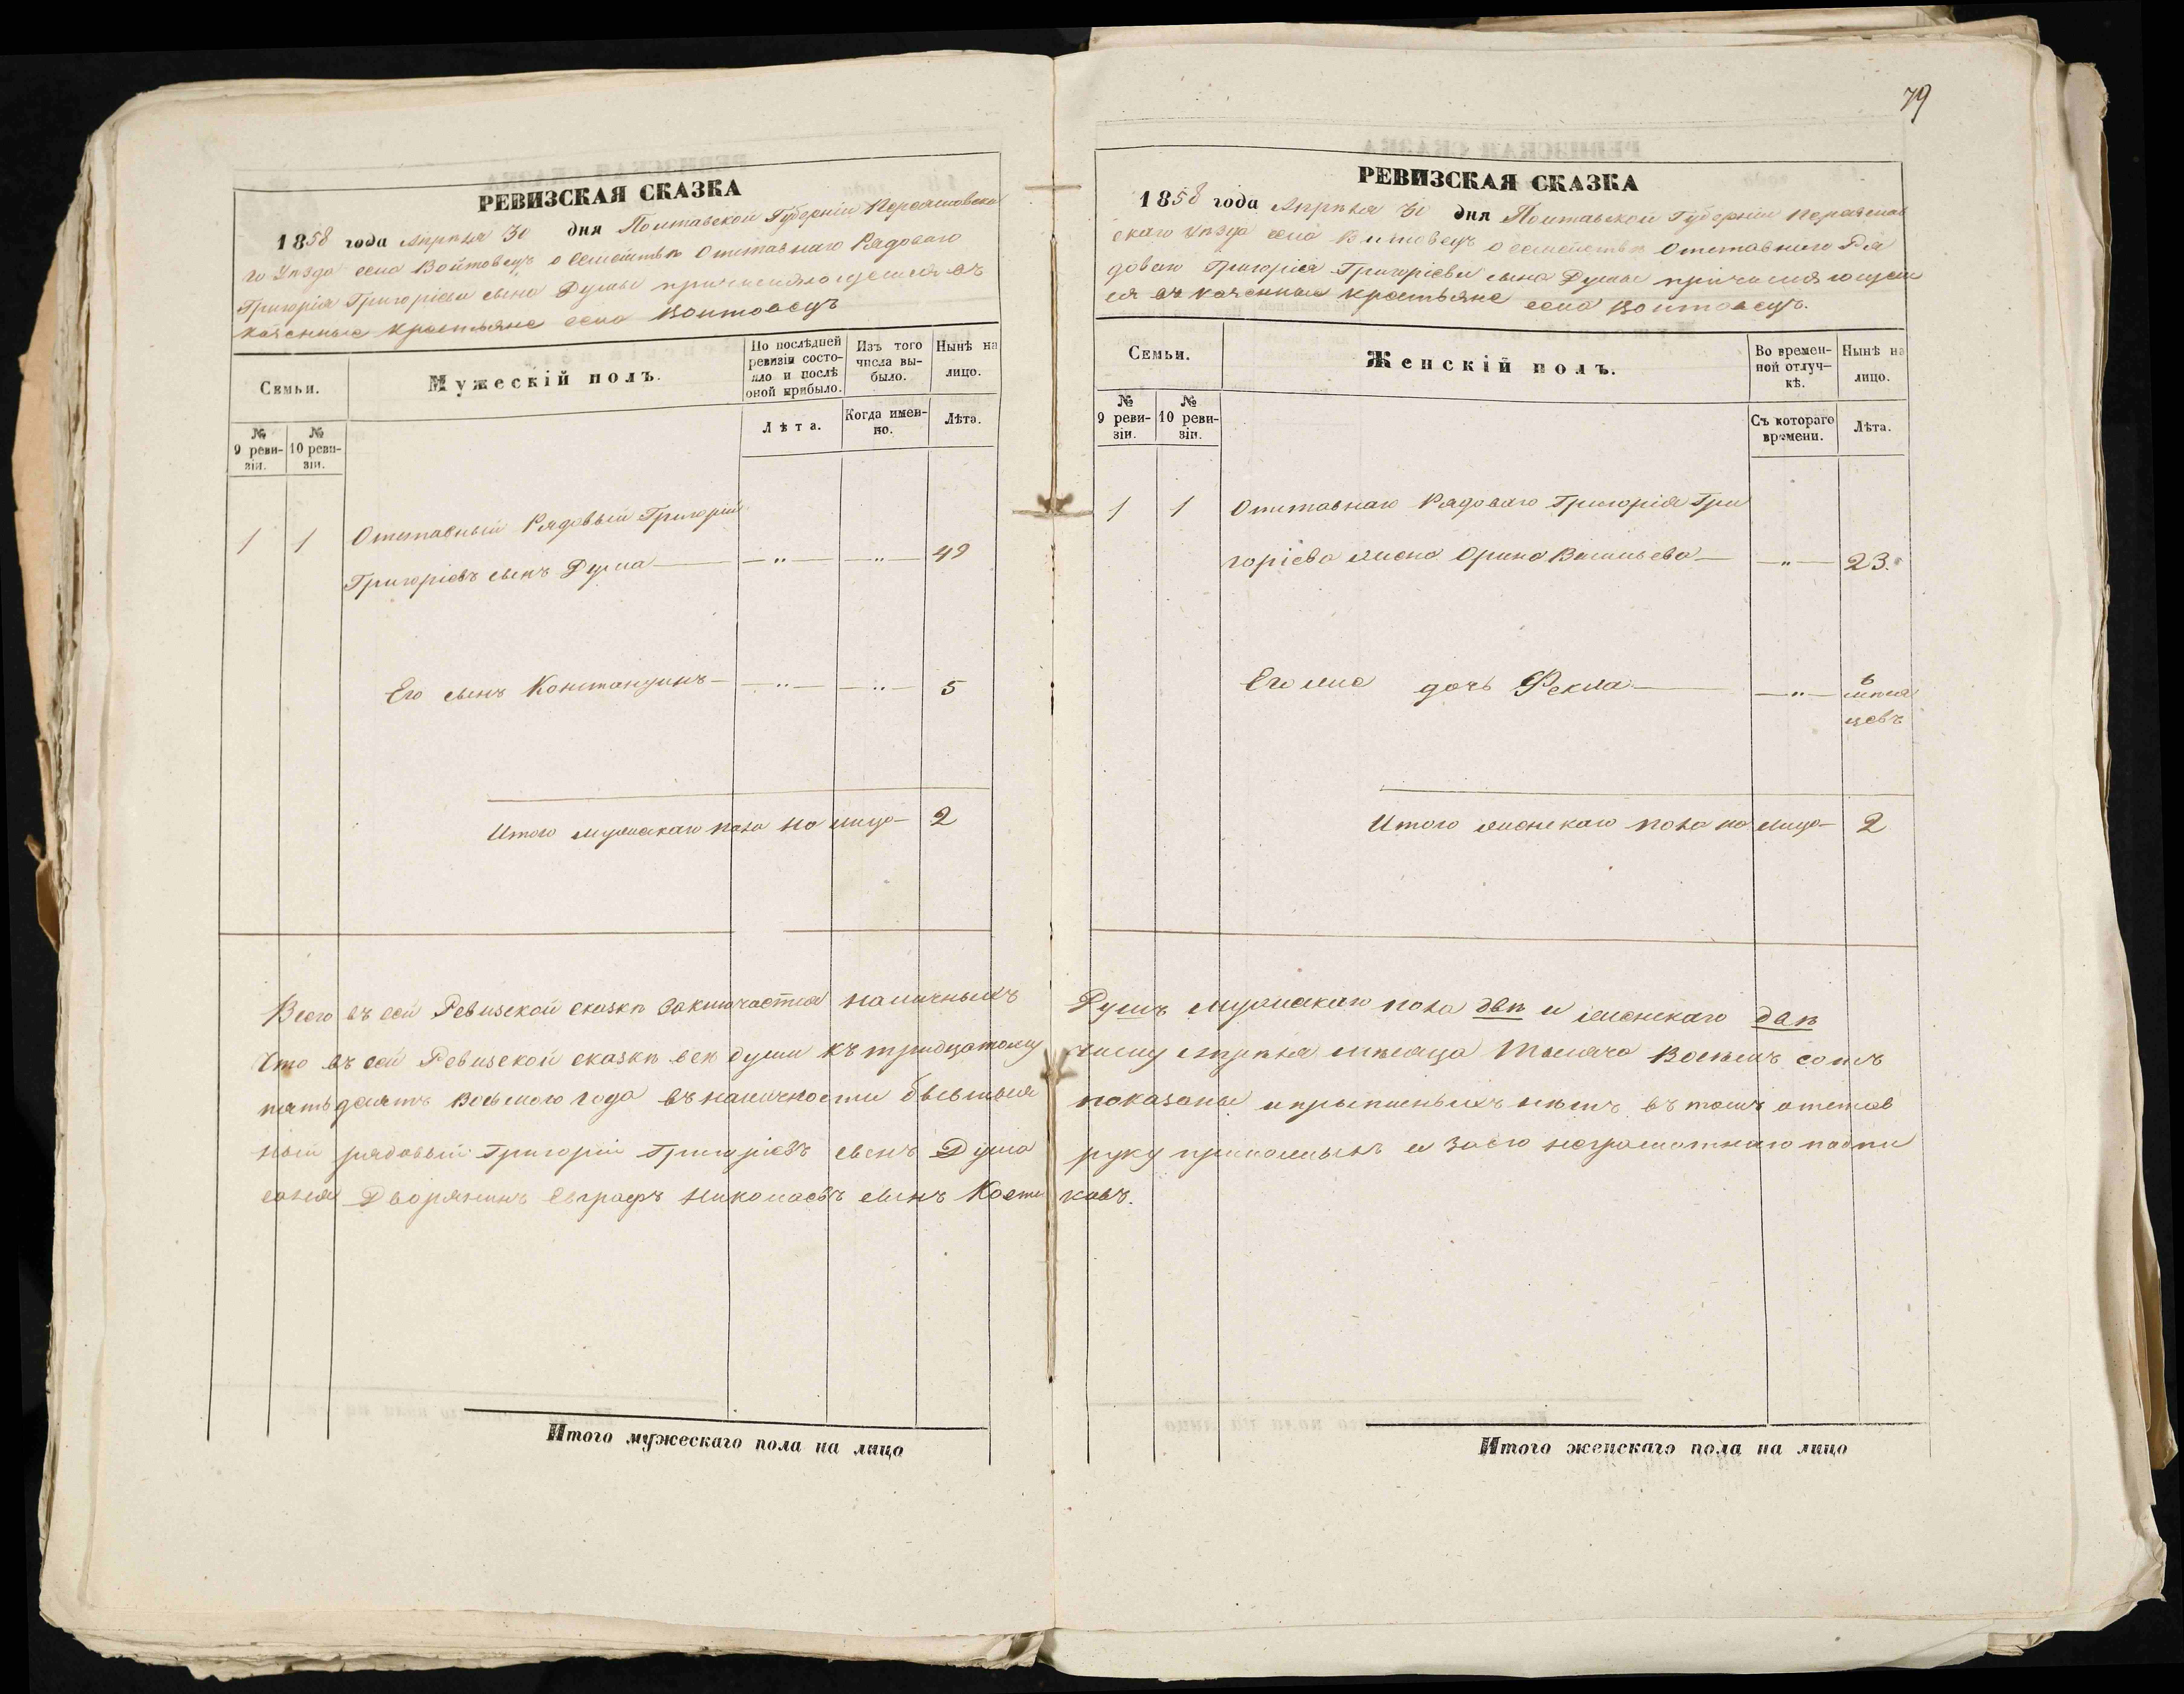 79
РЕВИЗСКАЯ СКАЗКА
1858 года Апрѣля 30 дня Полтавской Губерніи Переяславска
го Уѣзда села Войтовецъ о Семействѣ Отставнаго Рядоваго
Григорія Григоріева сына Думы причисляющемся въ
казенные крестьяне села Войтовецъ
Семьи.
Мужескій полъ.
По послѣдней ревизіи состояло и послѣ оной прибыло.
Изъ того числа выбыло.
Нынѣ на лицо.
№ 9 ревизіи.
№ 10 ревизіи.
Лѣта.
Когда именно.
Лѣта.
1 1 Отставный Рядовый Григорій
Григоріевъ сынъ Дума — „ — — „ — 49
Его сынъ Константинъ — — „ — — „ — 5
Итого мужескаго пола на лицо — 2
РЕВИЗСКАЯ СКАЗКА
1858 года Апрѣля 30 дня Полтавской Губерніи Переяслав
скаго Уѣзда села Войтовецъ о семействѣ Отставнаго Ря
доваго Григорія Григоріева сына Думы причисляющем
ся въ казенные крестьяне села Войтовецъ.
Семьи.
Женскій полъ.
Во временной отлучкѣ.
Нынѣ на лицо.
№ 9 ревизіи.
№ 10 ревизіи.
Съ котораго времени.
Лѣта.
1 1 Отставнаго Рядоваго Григорія Гри
горіева жена Орина Васильева — — „ — 23.
Его же дочь Фекла — — „ — 6
мѣся
цевъ
Итого женскаго пола на лицо — 2
Всего въ сей Ревизской сказкѣ Заключается наличныхъ Душъ мужескаго пола двѣ и женскаго двѣ
Что въ сей Ревизской сказкѣ всѣ души къ тридцатому числу Апрѣля мѣсяца Тысяча Восемь сотъ
пятьдесятъ Восьмого года въ наличности бывшыя показаны и прыписныхъ нѣтъ въ томъ отстав
ный рядовый Григорій Григоріевъ сынъ Дума руку
сался Дворянинъ Евграфъ Николаевъ сынъ Кости ковъ.
Итого мужескаго пола на лицо
Итого женскаго пола на лицо